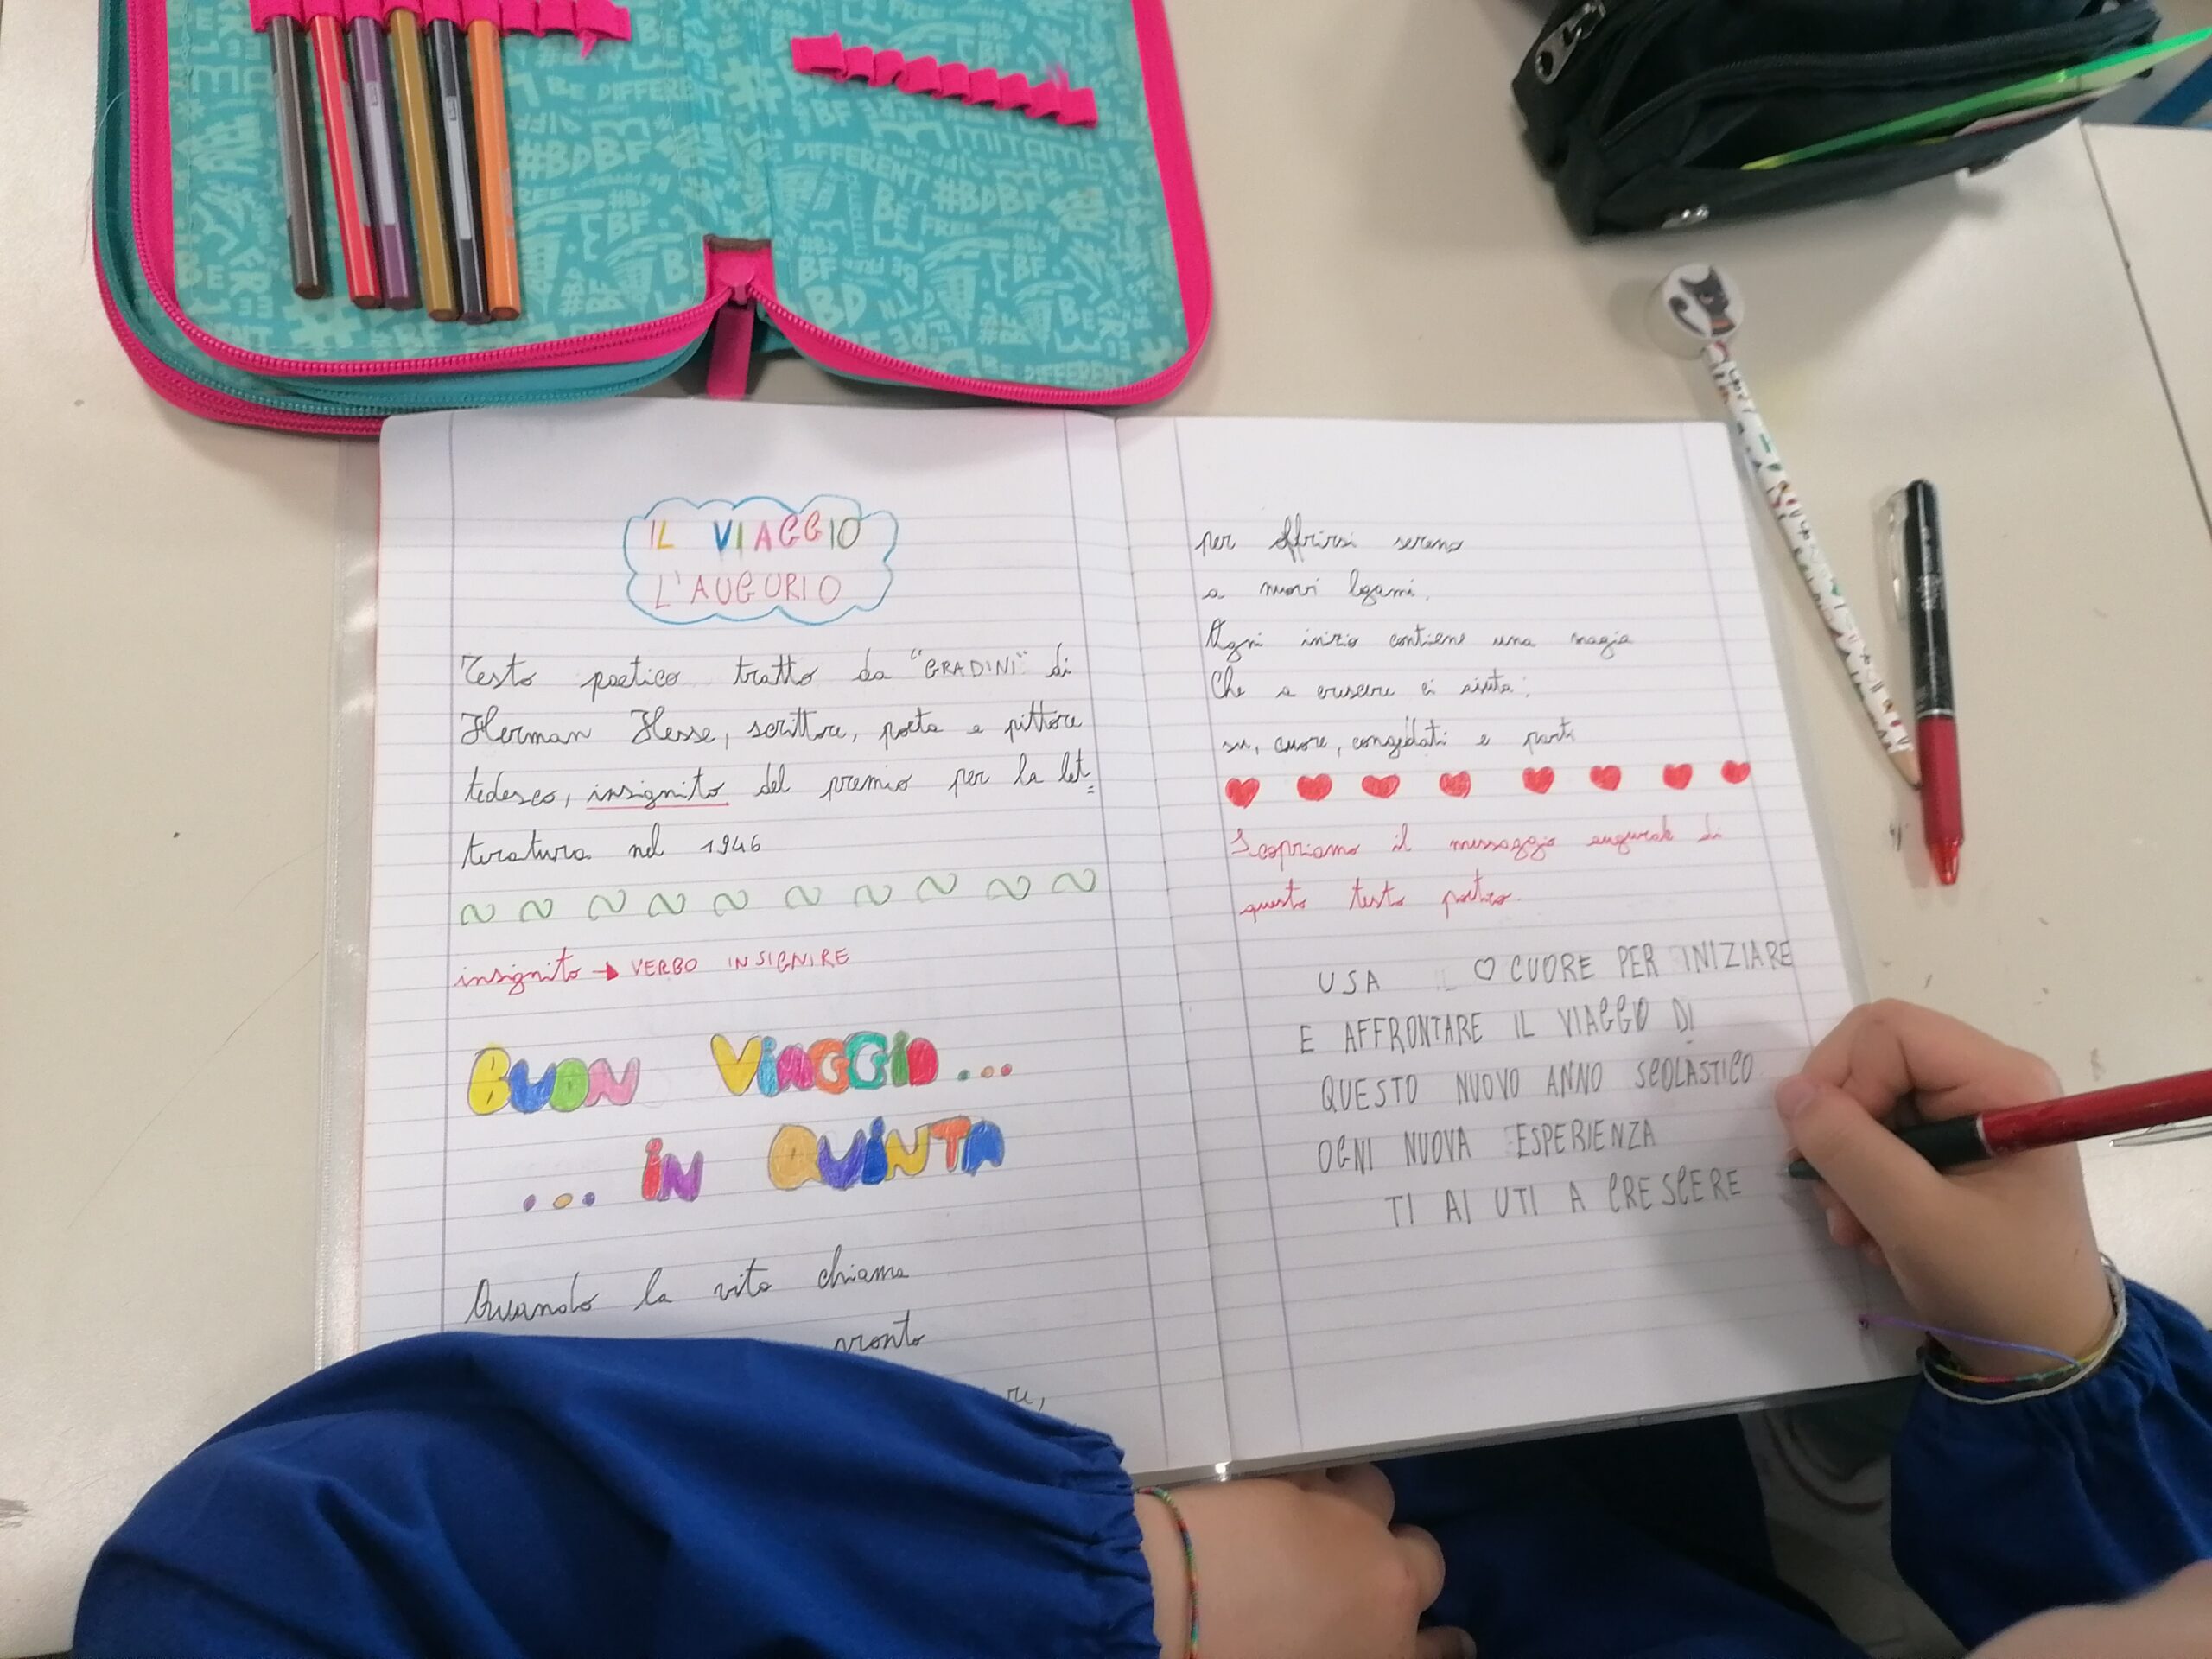 IL VIAGGIO
L'AUGURIO
Testo poetico tratto da "GRADINI" di
Herman Hesse, scrittore, poeta e pittore
tedesco, insignito del premio per la let=
teratura nel 1946
insignito → VERBO INSIGNIRE
BUON VIAGGIO...
... IN QUINTA
Quando la vita chiama
pronto
re,
per offrirsi sereno
a nuovi legami.
Ogni inizio contiene una magia
Che a crescere ci aiuta:
su, cuore, congedati e parti
Scopriamo il messaggio augurale di
questo testo poetico.
USA IL ♡ CUORE PER INIZIARE
E AFFRONTARE IL VIAGGIO DI
QUESTO NUOVO ANNO SCOLASTICO
OGNI NUOVA ESPERIENZA
TI AIUTI A CRESCERE
BE DIFFERENT
#BDBF
MITAMA
DIFFERENT
BE FREE
#BDBF